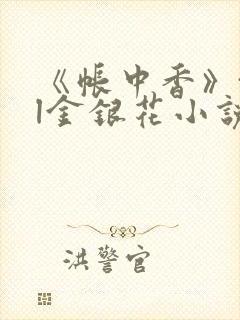 《帐中香》
|金银花小説
洪警官